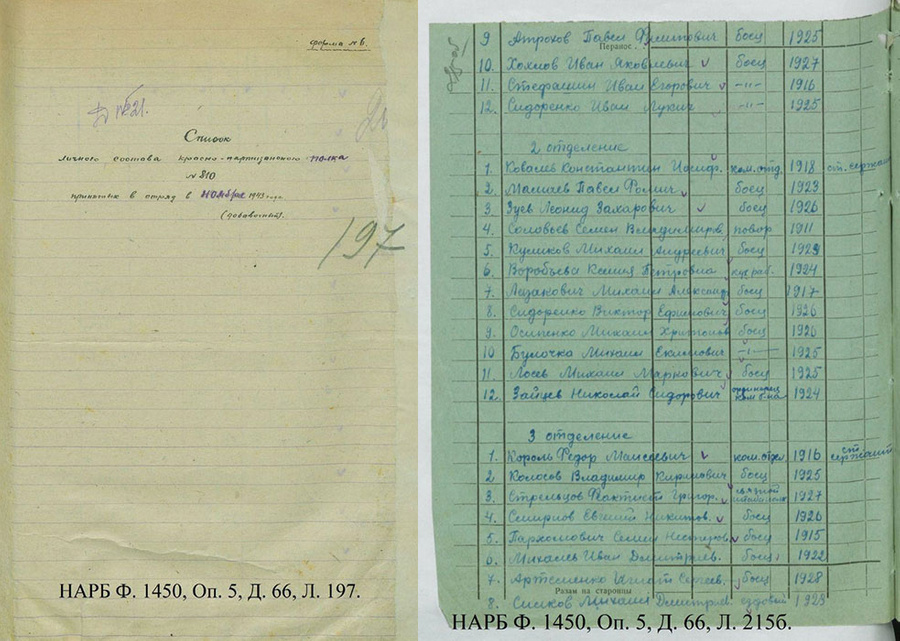 форма № 6.
Д №21.
Список
личного состава красно-партизанского полка
№ 810
принятых в отряд в ноябре 1943 года
(добавочный).
197
НАРБ Ф. 1450, Оп. 5, Д. 66, Л. 197.
9 Атрохов Павел Филипович боец 1925
Перанос
10. Хохлов Иван Яковлевич боец 1927
11. Стефашин Иван Егорович -"- 1916
12. Сидоренко Иван Лукич -"- 1925
2 отделение
1. Ковалев Константин Иосиф. ком.отд. 1918 ст. сержант
2. Павел боец 1923
3 Зуев Леонид Захарович боец 1926
4. Соловьев Семен Владимиров. повар 1911
5. Куликов Михаил Андреевич боец 1929
6. Воробьева Ксения Петровна 1924
7. Лазакович Михаил Александр. боец 1917
8. Сидоренко Виктор Ефимович боец 1926
9. Осипенко Михаил боец 1926
10 Булочко Михаил Екимович -"- 1925
11. Лосев Михаил Маркович боец 1925
12. Зайцев Николай Сидорович ординарец ком. б-на 1924
3 отделение
1. Король Федор Моисеевич ком. отдел 1916 ст. сержант
2 Колосов Владимир Кирпович боец 1925
3. Стрельцов Феактист Григор. связной 1927
4. Смирнов Евгений Никитов. боец 1926
5. Пархомович Семен Нестеров. боец 1915
6. Михалев Иван Дмитриев. боец 1922
7. Артеменко Игнат Сергеев. боец 1928
Разам на старонцы
8. Михаил Дмитрив. ездовой 1923
НАРБ Ф. 1450, Оп. 5, Д. 66, Л. 215б.